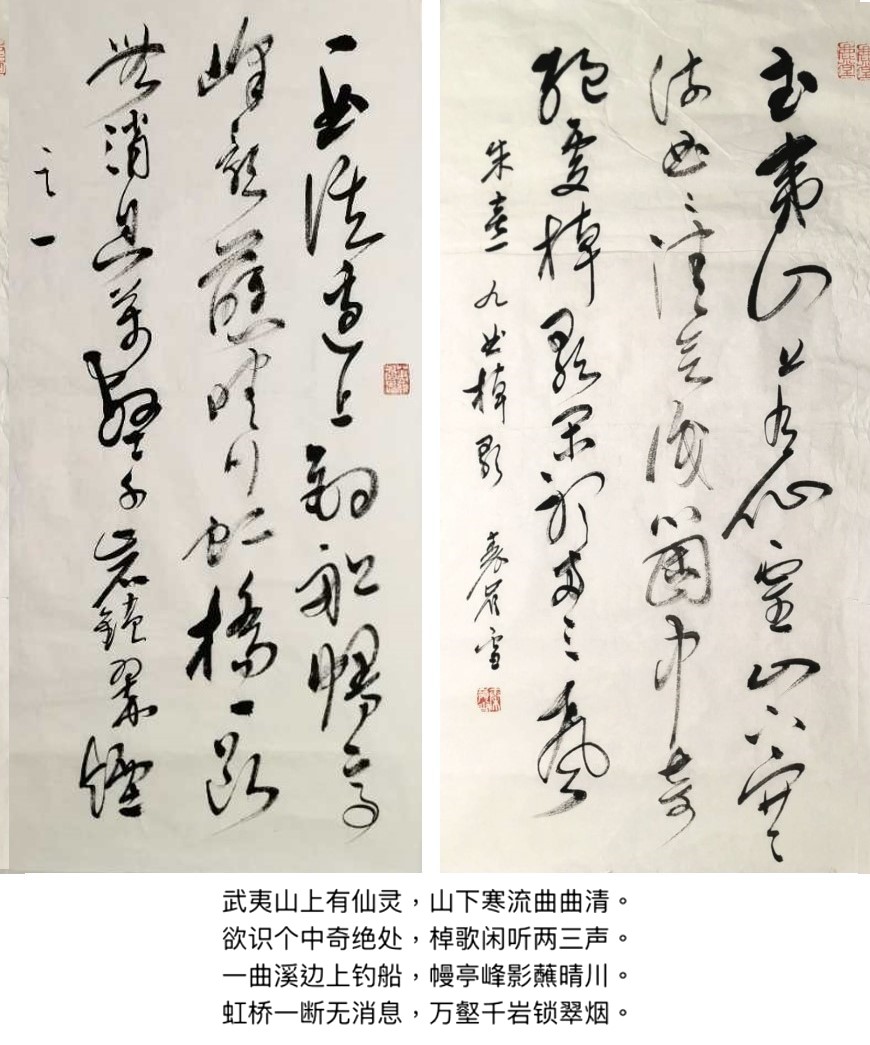 武夷山上有仙靈山下寒
流曲〻清欲識箇中奇
絕處棹歌閑聽兩三聲
朱熹 九曲棹歌
一曲溪邊上釣船幔亭
峰影蘸晴川虹橋一斷
無消息萬壑千岩鎖翠煙
之一
武夷山上有仙灵，山下寒流曲曲清。
欲识个中奇绝处，棹歌闲听两三声。
一曲溪边上钓船，幔亭峰影蘸晴川。
虹桥一断无消息，万壑千岩锁翠烟。